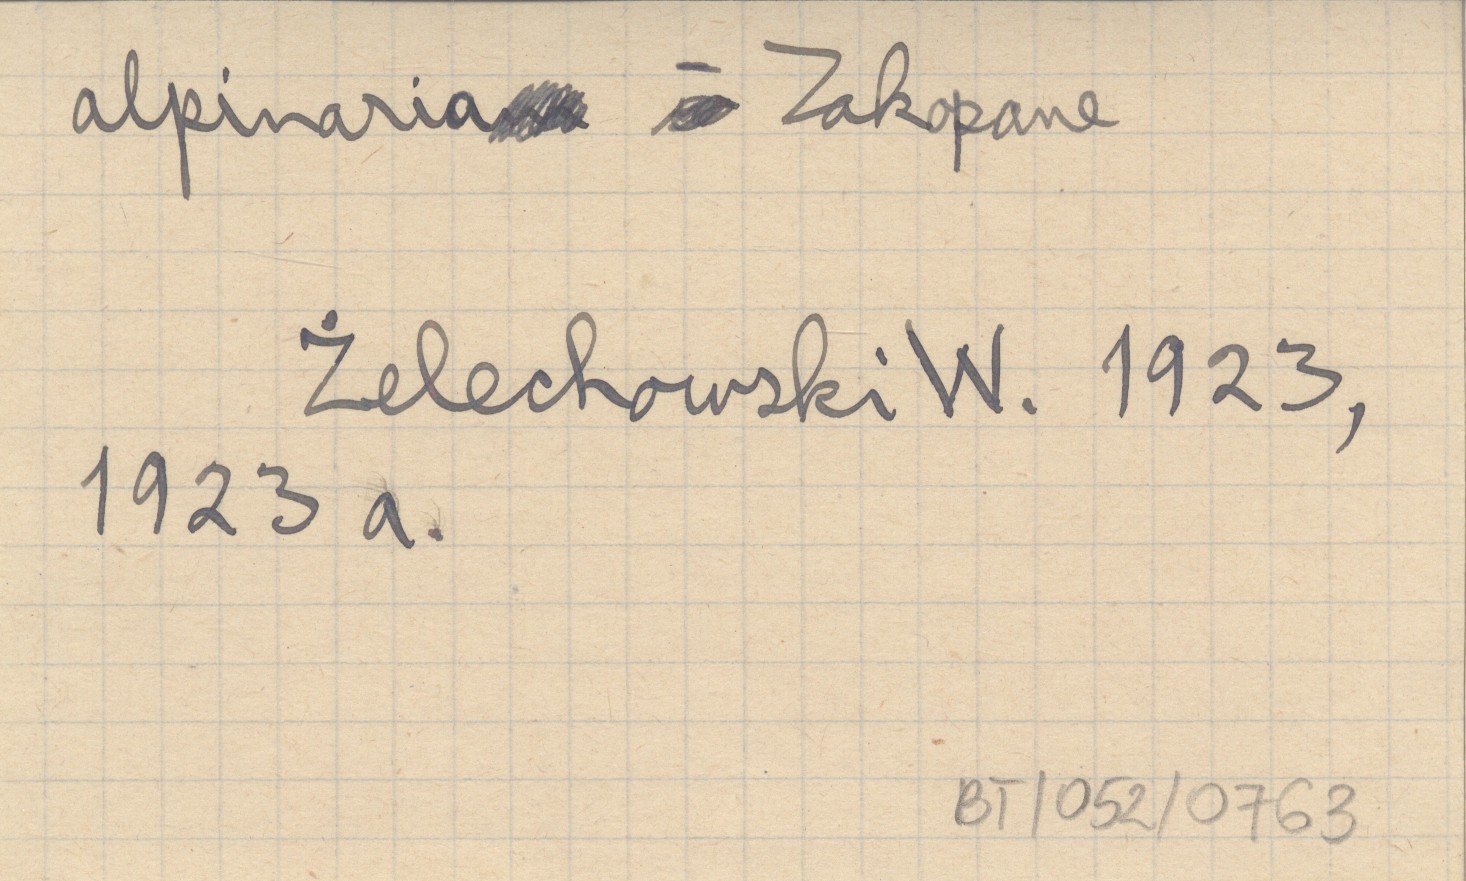 alpinaria - Zakopane
Żelechowski W. 1923,
1923 a.
BT/052/0763